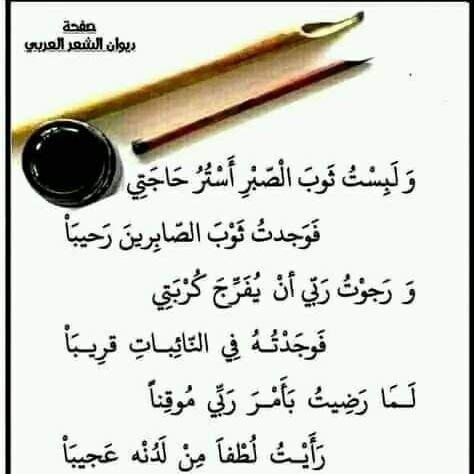 صفحة
ديوان الشعر العربي
وَ لَبِسْتُ ثَوبَ الْصّبْرِ أَسْتُرُ حَاجَتِي
فَوَجَدتُ ثَوْبَ الصّابِرينَ رَحيبَاْ
وَ رَجوْتُ رَبّي أنْ يُفَرِّجَ كُرْبَتِي
فَوَجَدْتُــهُ فِي النّائِبــاتِ قرِيــبَاْ
لَــمَا رَضِيتُ بَأَمْـرَ رَبِّي مُوقِناً
رَأَيْــتُ لُطْفاً مِنْ لَدُنْه عَجيبَاْ